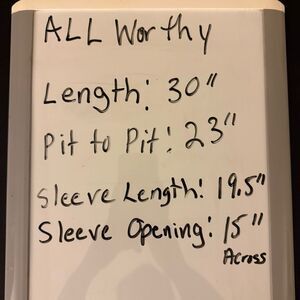 ALL Worthy
Length: 30"
Pit to Pit: 23"
Sleeve Length: 19.5"
Sleeve Opening: 15"
Across